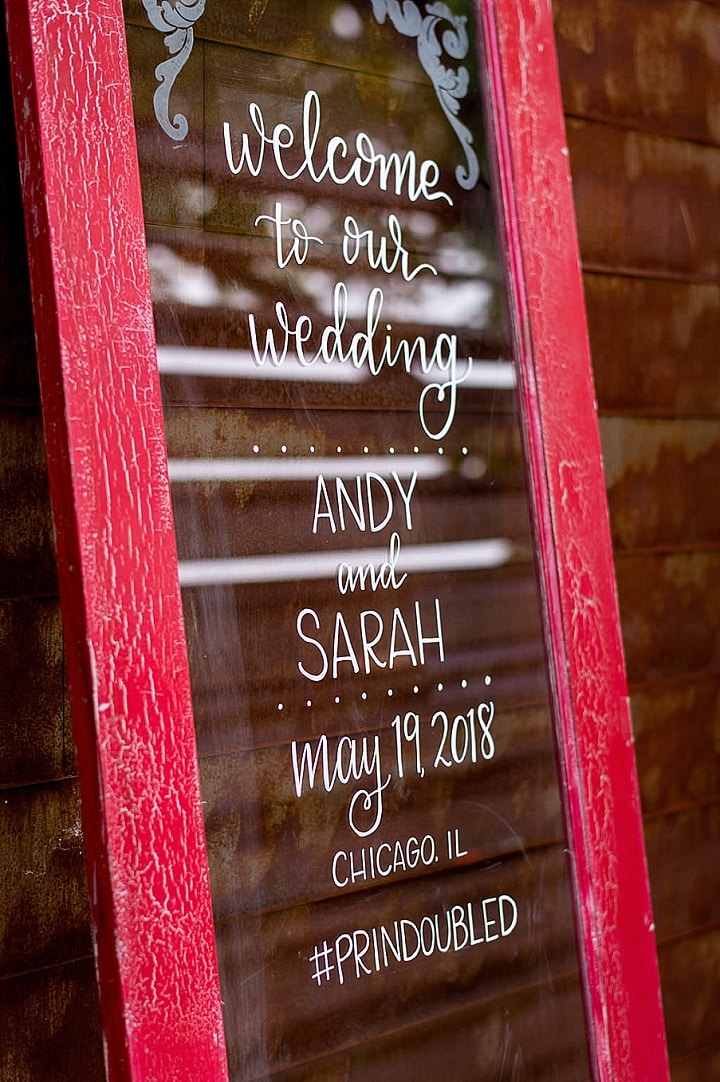 welcome
to our
wedding
ANDY
and
SARAH
may 19, 2018
CHICAGO, IL
#PRINDOUBLED